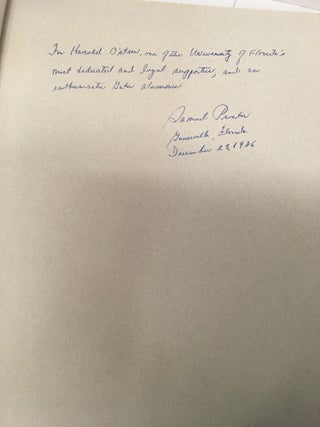 For Harold one of the University of Florida's
most dedicated and loyal supporters, and an
enthusiastic Gator alumnus
Samuel Proctor
Gainesville, Florida
December 23, 1986